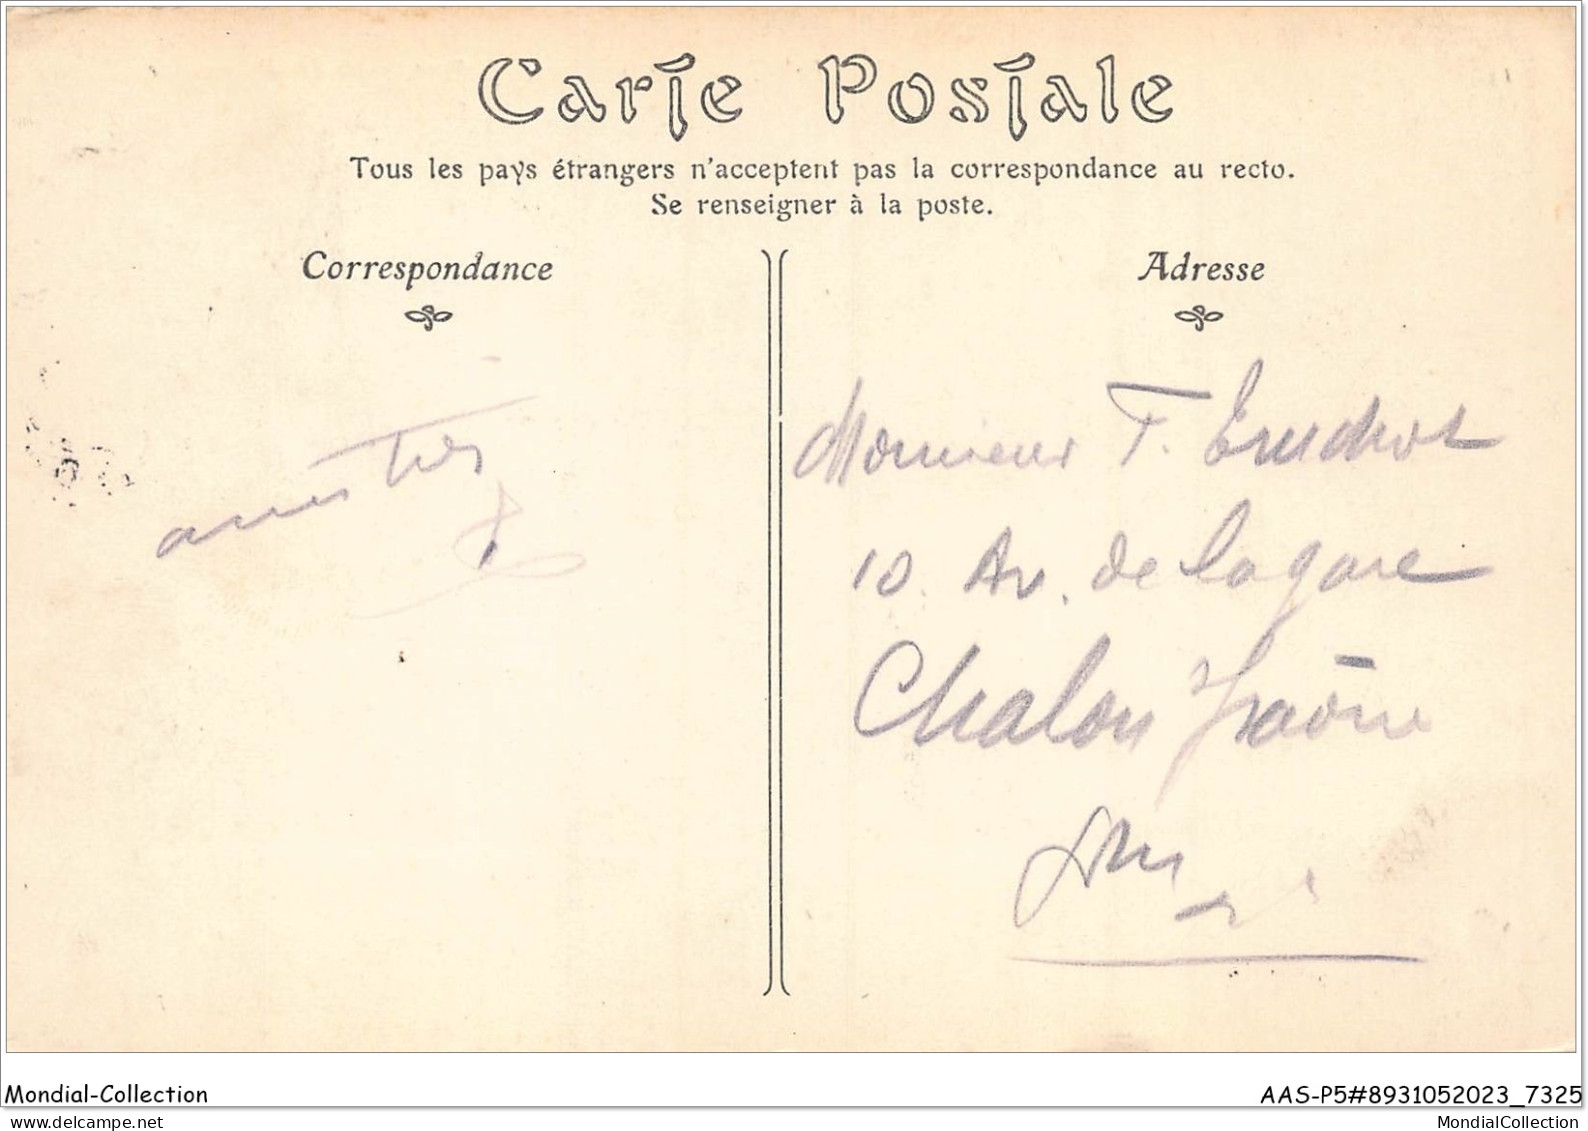 Carte Postale
Tous les pays étrangers n'acceptent pas la correspondance au recto.
Se renseigner à la poste.
Correspondance
Adresse
amitiés
Monsieur T.
10. Av. de la gare
Chalon s/Saône
Mondial-Collection
AAS-P5#8931052023_7325
MondialCollection.net
MondialCollection